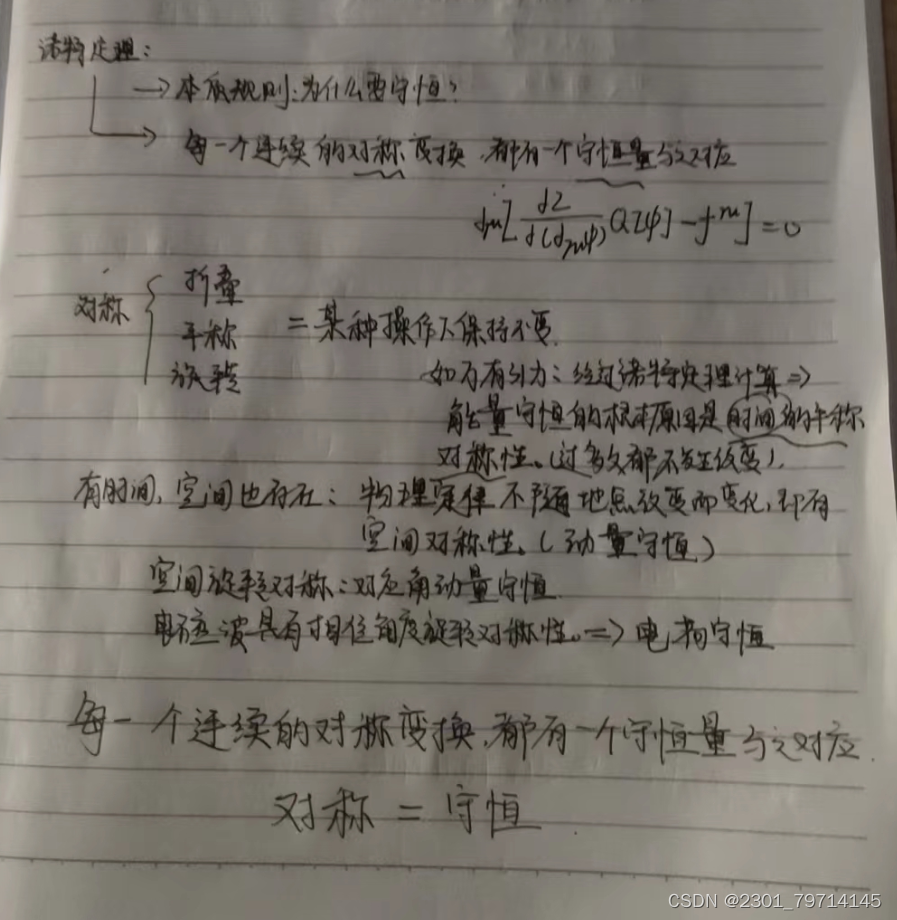 诺特定理：
→ 本质规则：为什么要守恒？
→ 每一个连续的对称变换，都有一个守恒量与之对应
dm[ dL / d(dmψ) Q[ψ] - f^m ] = 0
折叠
对称 { 平称 = 某种操作下保持不变.
旋转
如万有引力：经过诺特定理计算 ⇒
能量守恒的根本原因是时间的平称
对称性。(过多久都不发生改变).
有时间，空间也存在：物理定律不随地点改变而变化，即有
空间对称性。(动量守恒)
空间旋转对称：对应角动量守恒
电磁波具有相位角度旋转对称性。⇒ 电荷守恒
每一个连续的对称变换，都有一个守恒量与之对应.
对称 = 守恒
CSDN @2301_79714145